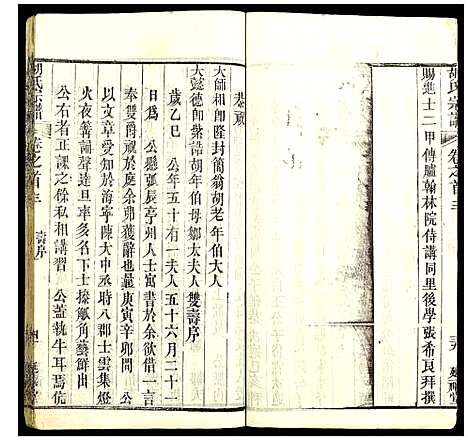 胡氏宗譜
卷之首三
賜進士二甲傳臚翰林院侍講同里後學張希良拜撰
恭祝
大師相即隆封簡翁胡老年伯大人
大懿德即榮誥胡年伯母鄒太夫人雙壽序
歲乙巳　公年五十有一夫人五十六月二十一
日爲　公懸弧辰亭州人士寓書於余欲借一言
奉雙爵祝於庭余弗獲辭也曩庚寅辛卯間　公
以文章受知於海寧陳大中丞時八郡士雲集燈
火夜籌誦聲達旦率多名下士操觚角藝鮮出
公右者正課之餘私相講習　公蓋執牛耳焉伉
胡氏宗譜
卷之首三
壽序